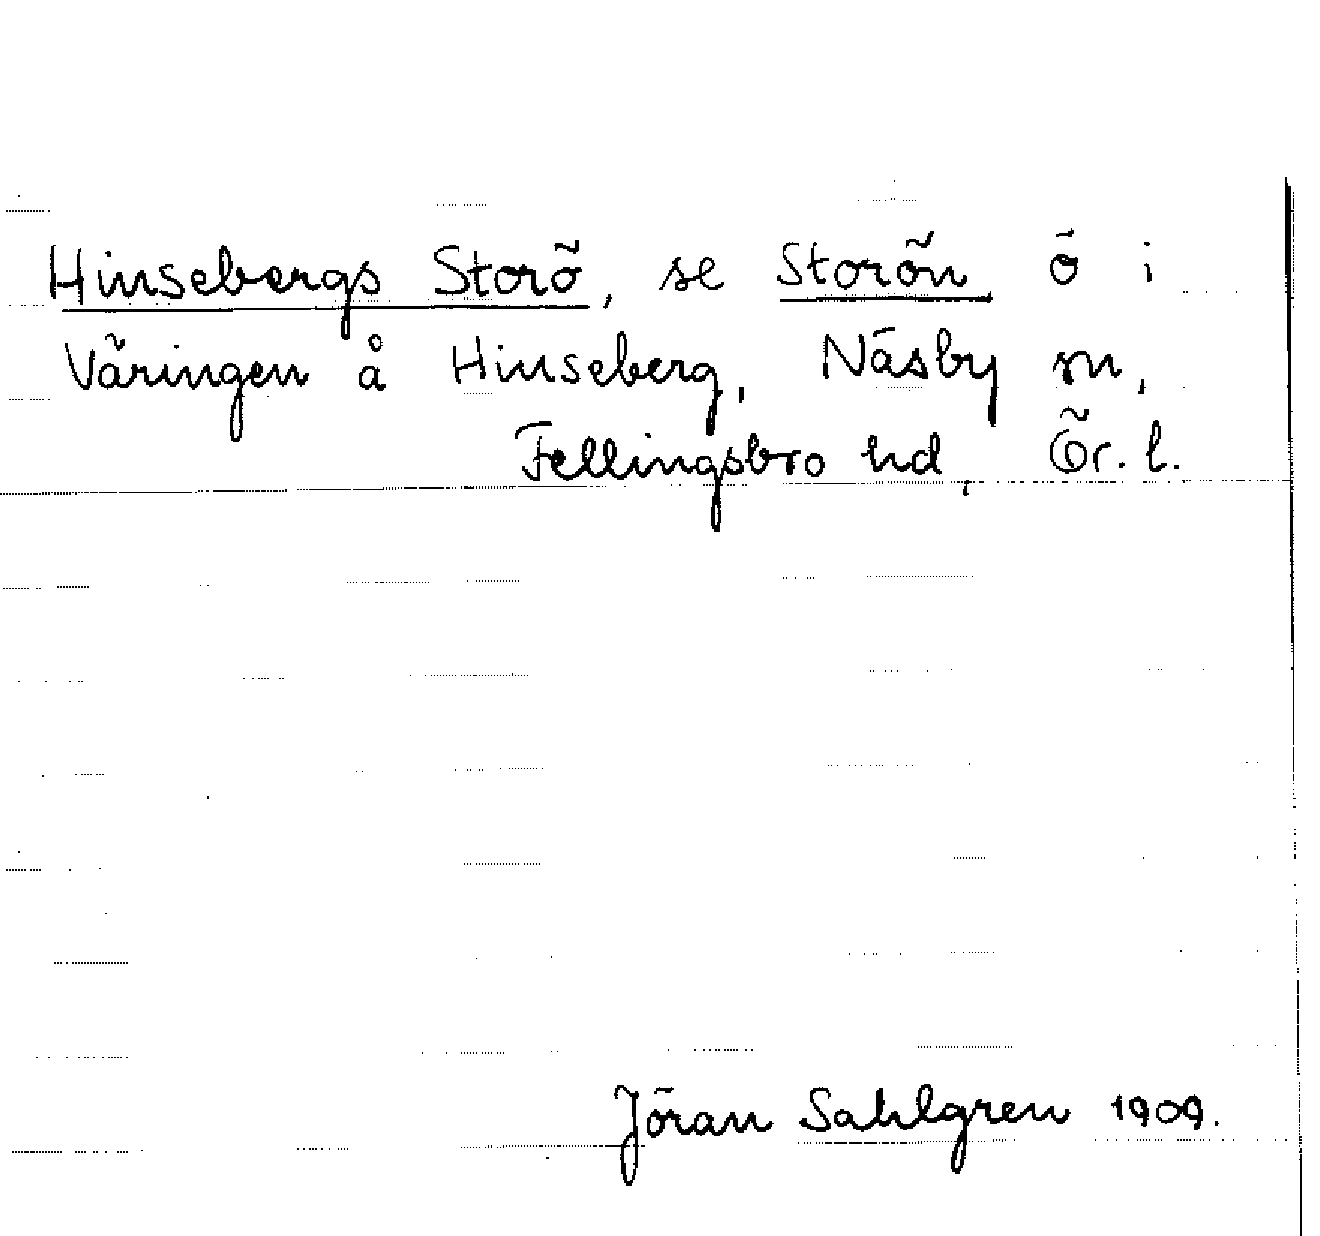 Hinsebergs Storö, se Storön ö i
Väringen å Hinseberg, Näsby sn,
Fellingsbro hd, Ör. l.
Jöran Sahlgren 1909.